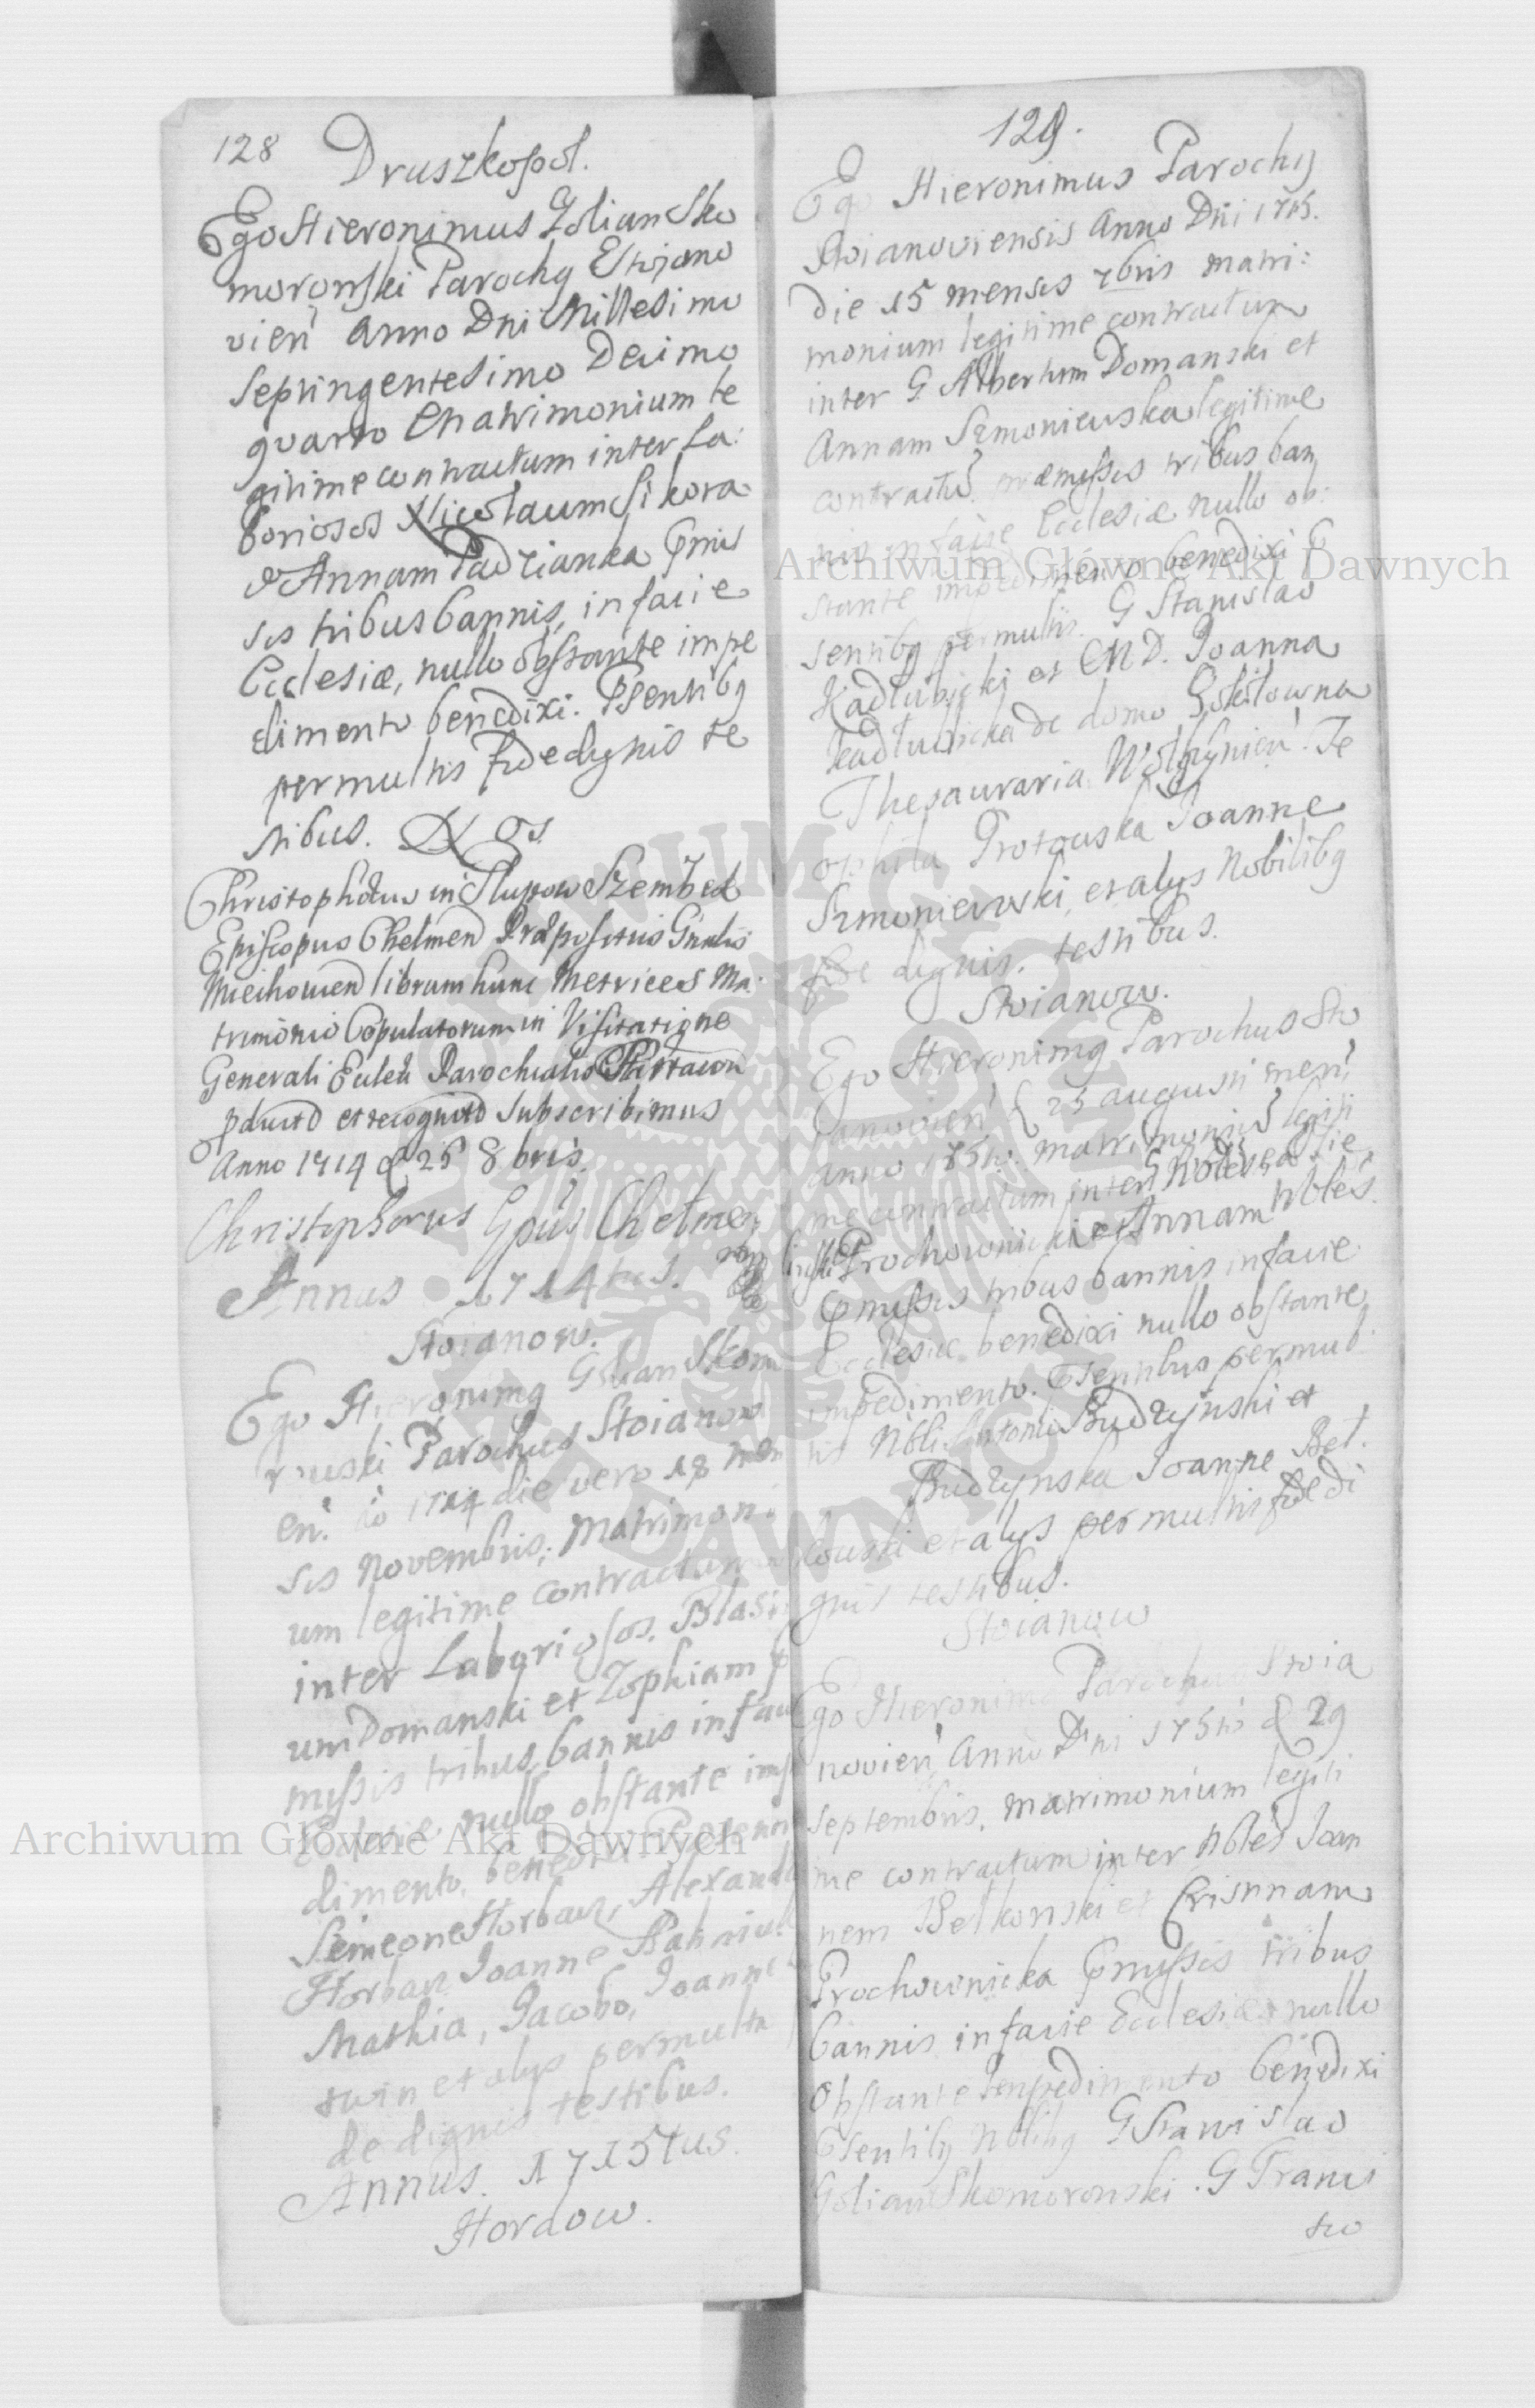 128 Druszkopol.
Ego Hieronimus Golian Sko
moroński Parochg Stojano
vien Anno Dni Millesimo
Septingentesimo Decimo
quarto Matrimonium le
gitime contractum inter La:
boriosos Nicolaum Sikora
& Annam Padzianka pmis
sis tribus bannis, in facie
Ecclesiæ, nullo obstante impe
dimento benedixi. Psentibg
permultis fide dignis te
stibus.
Christophorus in Slupow Szembek
Episcopus Chelmen Præpositus Gnalis
Miechovien librum hunc Metrices Ma:
trimonio Copulatorum in Visitatione
Generali Eccleæ Parochialis
pductu et recognitu subscribimus
Anno 1714 d 25 8bris.
Christophorus Epus Chelmen
Annus 1714tus.
Stoianow.
Ego Hieronimg Golian Skomo
ruski Parochus Stoianovi
en. Ao 1714 die vero 18 men
sis Novembris, Matrimoni
um legitime contractum
inter Laboriosos. Blasi
um Domanski et Zophiam p
myssis tribus bannis in faci
Ecclesiæ, nullo obstante impe
dimento, benedixi
Simeone Horbacz, Alexandro
Horbacz Joanne
Mathia, Jacobo, Joanne
et alys permultis
de dignis testibus.
Annus. 1715tus.
Hordow.
129.
Ego Hieronimus Parochg
Stoianoviensis Anno Dni 1715.
die 15 mensis 7bris matri:
monium legitime contractum
inter G. Albertum Domanski et
Annam Szmoniewska legitime
contractu præmissis tribus ban
nis in facie Ecclesiæ nullo ob:
stante impedimento benedixi p
sentibg permultis. G Stanislao
Kadlubicki et M D. Joanna
Kadlubicka de domo
Thesauraria Wolhynien. Te
ophila Protowska Joanne
Szmoniewski, et alys Nobilibg
fide dignis testibus.
Stoianow.
Ego Hieronimg Parochus Sto
ianovien d 25 augusti men
anno 1715to. matrimoniu legiti
me contractum inter
Prochownicki et Annam
pmissis tribus bannis in facie
Ecclesiæ benedixi nullo obstante
impedimento. Psentibus permul
tis Nbli Antonio Budzynski et
Budzynska Joanne Bet.
kouski et alys permultis fide di
gnis testibus.
Stoianow
Ego Hieronimg Parochus Stoia
novien Anno Dni 1715to d 29
Septembris. matrimonium legiti
me contractum inter Nbles Joan
nem Betkonski et Crisnnam
Prochownicka pmyssis tribus
bannis in facie Ecclesiæ nullo
obstante Impedimento benedixi
psentibg Nblibg G Stanislao
Golian Skomoronski. G Franci
sco
Archiwum Główne Akt Dawnych
Archiwum Główne Akt Dawnych
ARCHIWUM GŁÓWNE AKT DAWNYCH